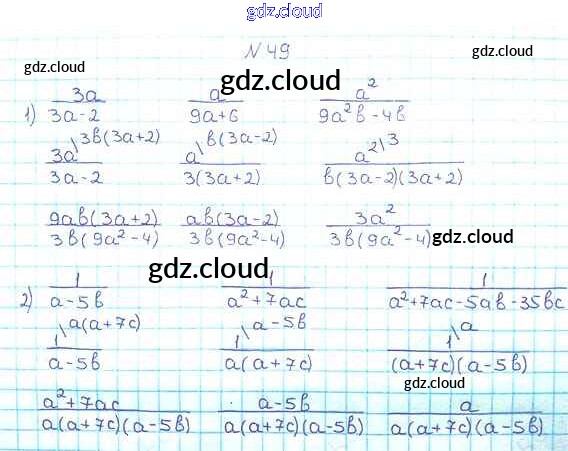 gdz.cloud
N 49
gdz.cloud gdz.cloud
gdz.cloud
1) 3a/(3a-2) a/(9a+6) a²/(9a²в-4в)
3a\3в(3a+2)/(3a-2) a\в(3a-2)/(3(3a+2)) a²\3/(в(3a-2)(3a+2))
9aв(3a+2)/(3в(9a²-4)) aв(3a-2)/(3в(9a²-4)) 3a²/(3в(9a²-4))
gdz.cloud
gdz.cloud
2) 1/(a-5в) 1/(a²+7ac) 1/(a²+7ac-5aв-35вc)
1\a(a+7c)/(a-5в) 1\a-5в/(a(a+7c)) 1\a/((a+7c)(a-5в))
gdz.cloud
(a²+7ac)/(a(a+7c)(a-5в)) (a-5в)/(a(a+7c)(a-5в)) a/(a(a+7c)(a-5в))